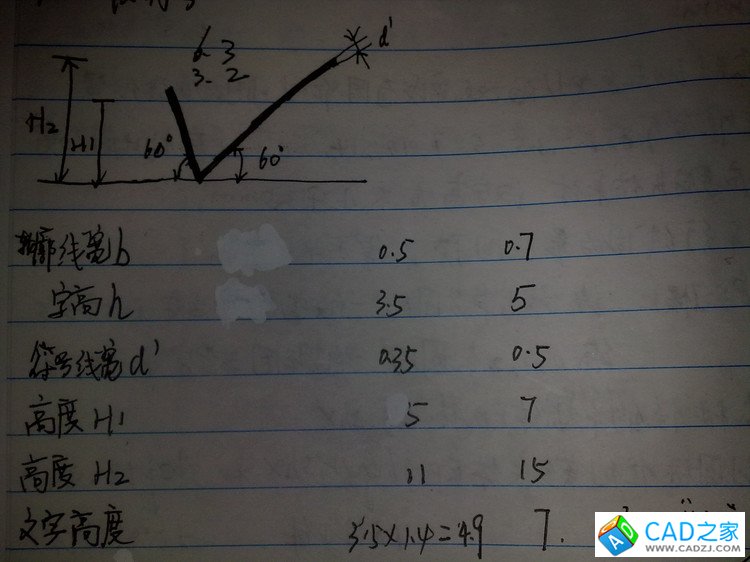 6.3
3.2
d'
H2
H1
60°
60°
轮廓线宽b 0.5 0.7
字高h 3.5 5
符号线宽d' 0.35 0.5
高度H1 5 7
高度H2 11 15
文字高度 3.5×1.4=4.9 7.
CAD之家
WWW.CADZJ.COM